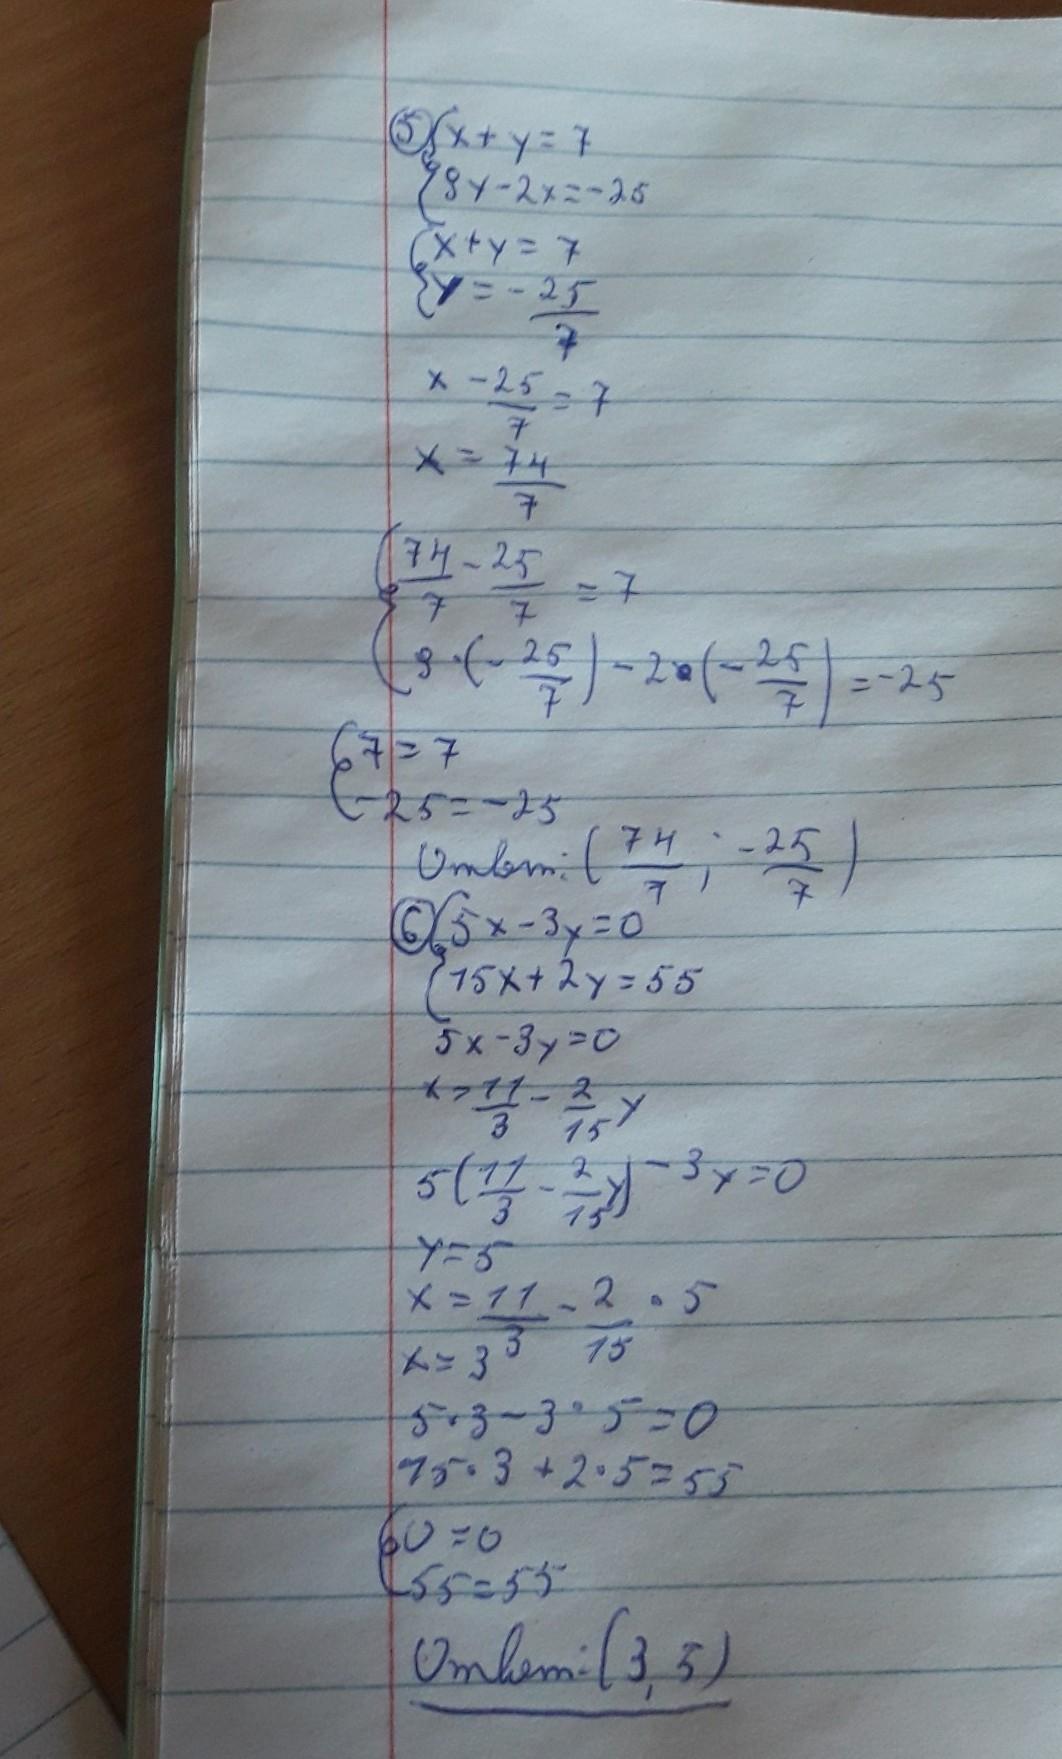 5) { x + y = 7
{ 9y - 2x = -25
{ x + y = 7
{ y = - 25/7
x - 25/7 = 7
x = 74/7
{ 74/7 - 25/7 = 7
{ 9 · (- 25/7) - 2 · (- 25/7) = -25
{ 7 = 7
{ -25 = -25
Ответ: (74/7 ; - 25/7)
6) { 5x - 3y = 0
{ 15x + 2y = 55
5x - 3y = 0
x = 11/3 - 2/15 y
5(11/3 - 2/15 y) - 3y = 0
y = 5
x = 11/3 - 2/15 · 5
x = 3
5 · 3 - 3 · 5 = 0
15 · 3 + 2 · 5 = 55
{ 0 = 0
{ 55 = 55
Ответ: (3, 5)